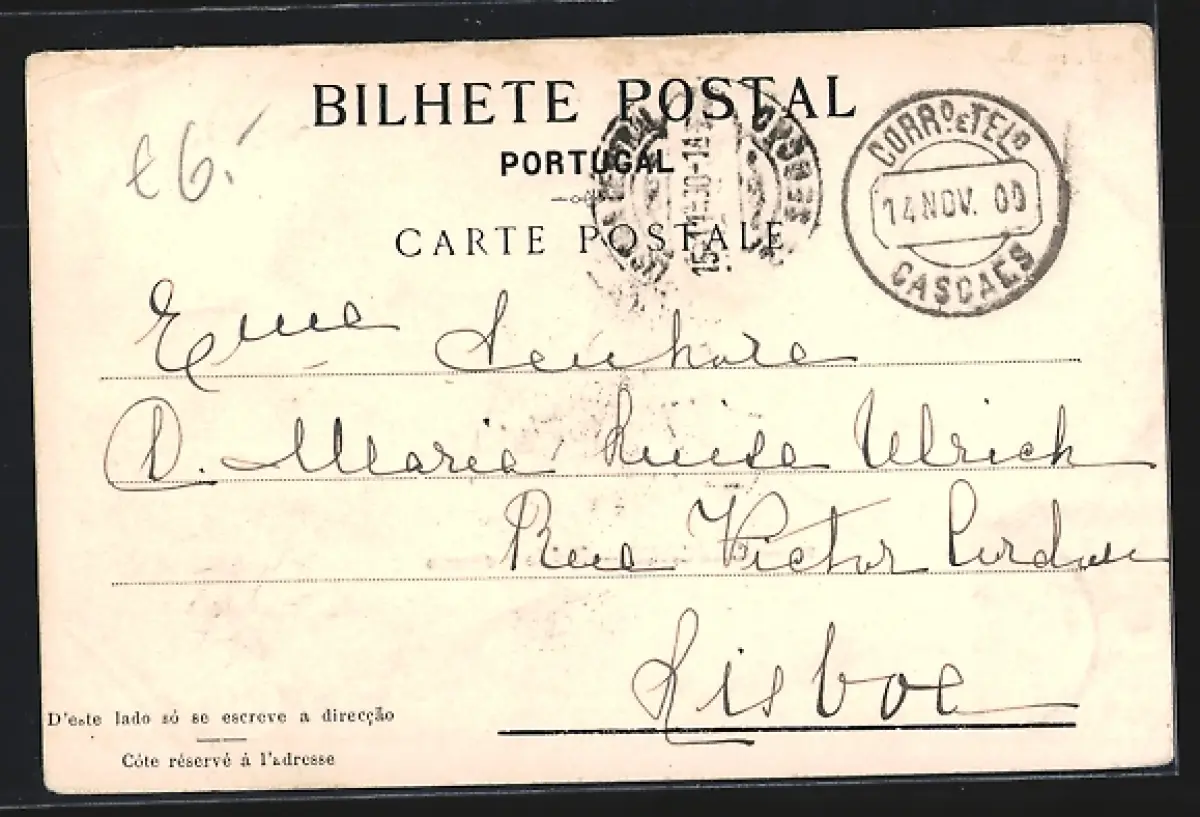 BILHETE POSTAL
PORTUGAL
CARTE POSTALE
CORRO. E TELO
14 NOV. 00
CASCAES
€6.-
Exma Senhora
D. Maria Luisa Ulrich
Rua Victor Cordon
Lisboa
D'este lado só se escreve a direcção
Côte réservé á l'adresse